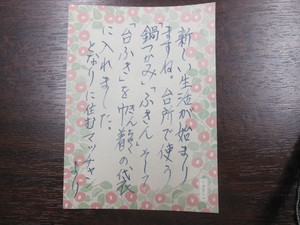 新しい生活が始まり
ますね。台所で使う
「鍋つかみ」「ふきん」そして
「台ふき」を巾着の袋
きんちゃく
に入れました。
となりに住むマッチャン
より